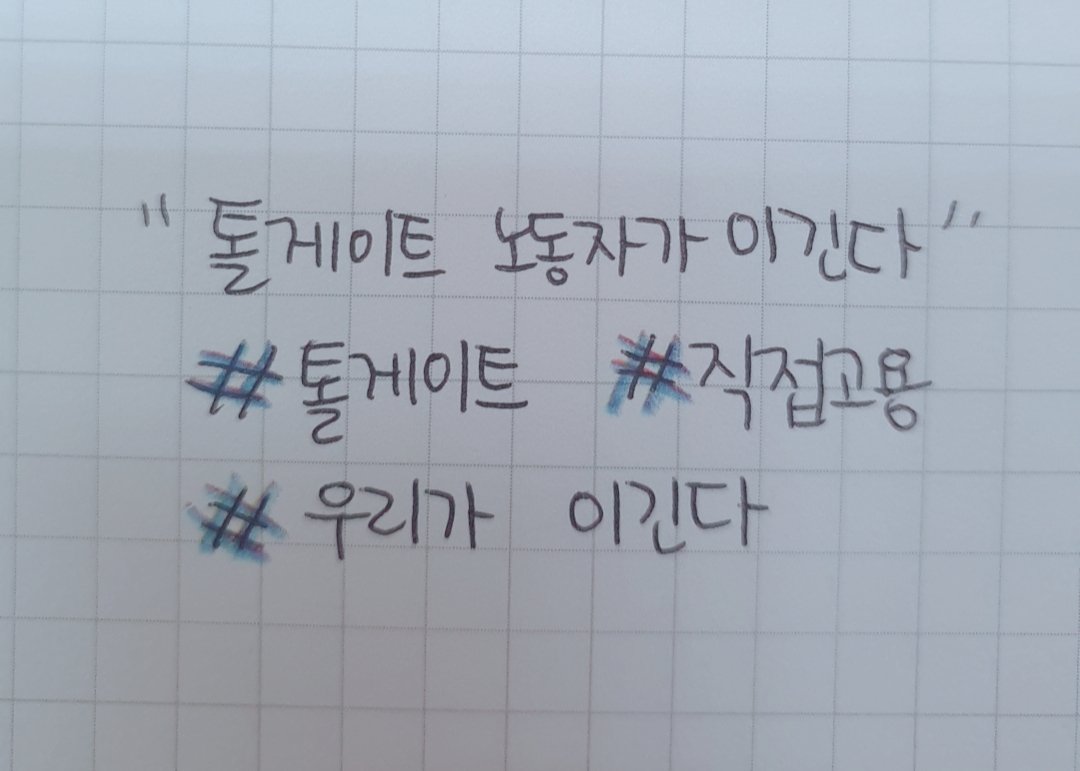 "톨게이트 노동자가 이긴다"
#톨게이트 #직접고용
#우리가 이긴다